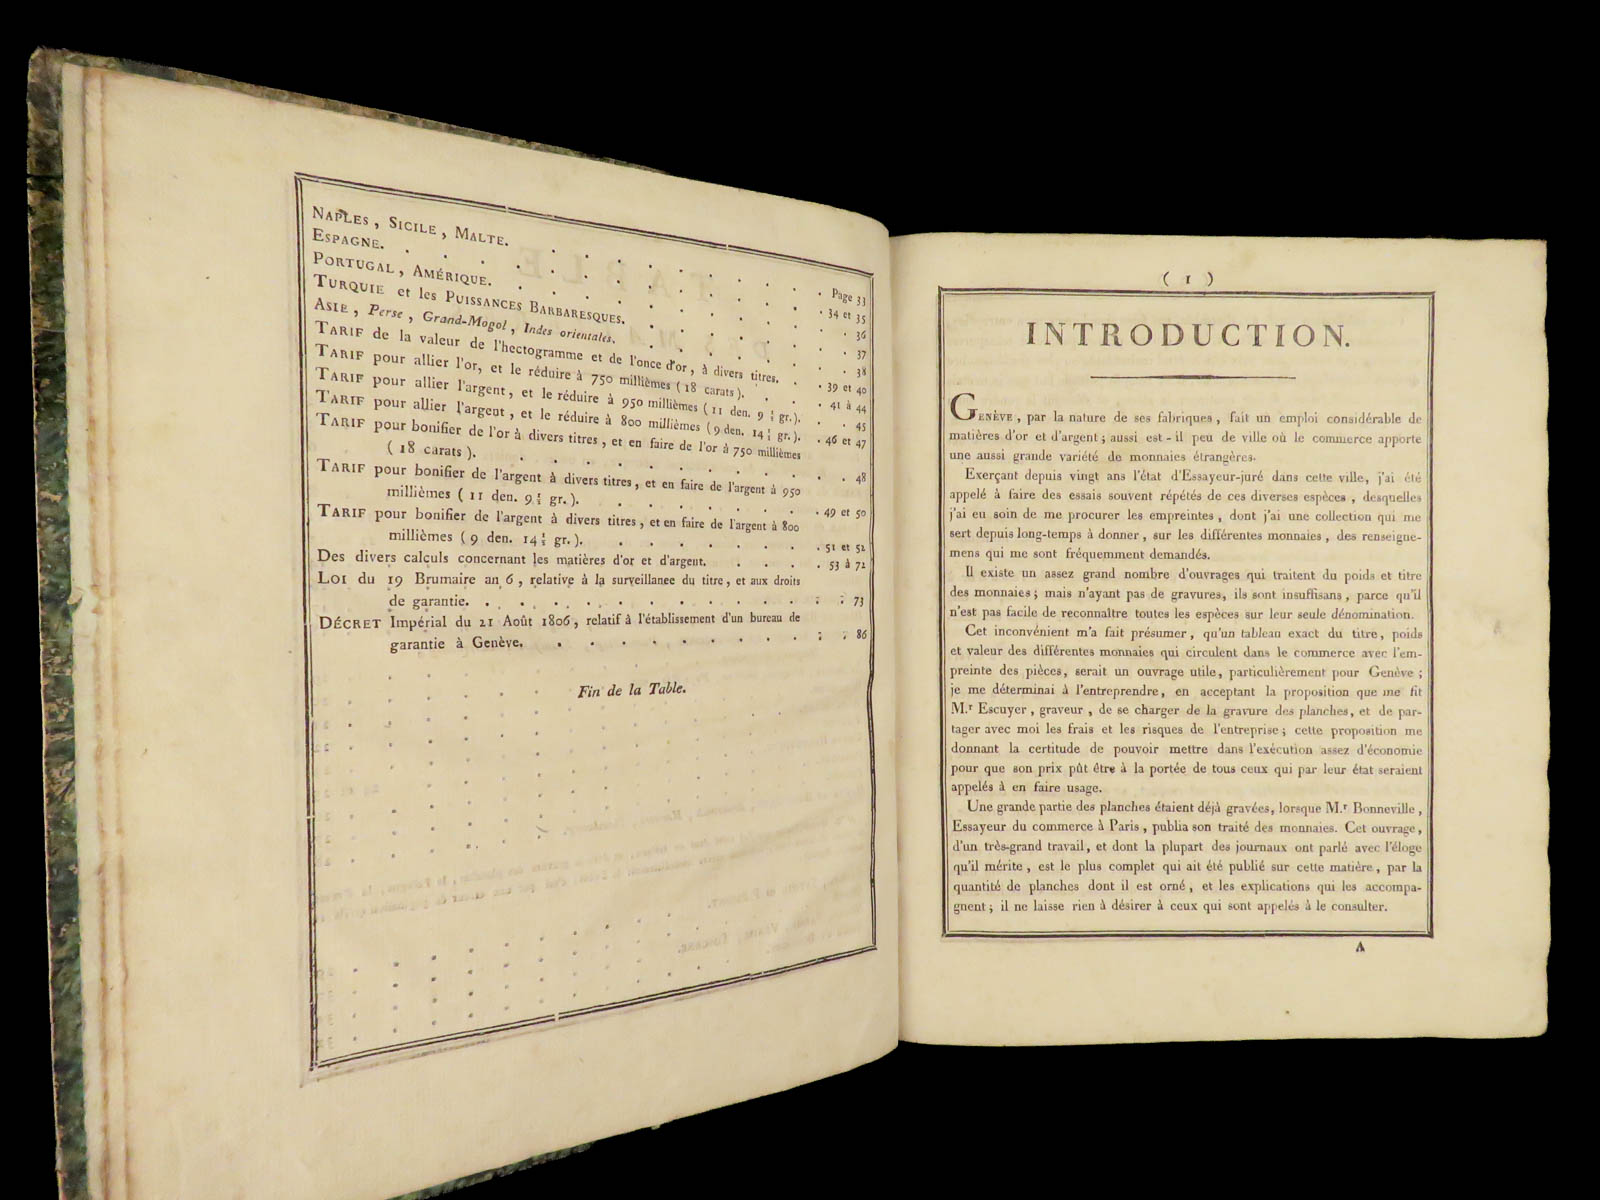 NAPLES, SICILE, MALTE. Page 33
ESPAGNE. 34 et 35
PORTUGAL, AMÉRIQUE. 36
TURQUIE et les PUISSANCES BARBARESQUES. 37
ASIE, Perse, Grand-Mogol, Indes orientales. 38
TARIF de la valeur de l'hectogramme et de l'once d'or, à divers titres. 39 et 40
TARIF pour allier l'or, et le réduire à 750 millièmes (18 carats). 41 à 44
TARIF pour allier l'argent, et le réduire à 950 millièmes (11 den. 9 gr.). 45
TARIF pour allier l'argent, et le réduire à 800 millièmes (9 den. 14 gr.). 46 et 47
TARIF pour bonifier de l'or à divers titres, et en faire de l'or à 750 millièmes
(18 carats). 48
TARIF pour bonifier de l'argent à divers titres, et en faire de l'argent à 950
millièmes (11 den. 9 gr.). 49 et 50
TARIF pour bonifier de l'argent à divers titres, et en faire de l'argent à 800
millièmes (9 den. 14 gr.). 51 et 52
Des divers calculs concernant les matières d'or et d'argent. 53 à 72
LOI du 19 Brumaire an 6, relative à la surveillance du titre, et aux droits
de garantie. 73
DÉCRET Impérial du 21 Août 1806, relatif à l'établissement d'un bureau de
garantie à Genève. 86
Fin de la Table.
( 1 )
INTRODUCTION.
GENÈVE, par la nature de ses fabriques, fait un emploi considérable de
matières d'or et d'argent; aussi est-il peu de ville où le commerce apporte
une aussi grande variété de monnaies étrangères.
Exerçant depuis vingt ans l'état d'Essayeur-juré dans cette ville, j'ai été
appelé à faire des essais souvent répétés de ces diverses espèces, desquelles
j'ai eu soin de me procurer les empreintes, dont j'ai une collection qui me
sert depuis long-temps à donner, sur les différentes monnaies, des renseigne-
mens qui me sont fréquemment demandés.
Il existe un assez grand nombre d'ouvrages qui traitent du poids et titre
des monnaies; mais n'ayant pas de gravures, ils sont insuffisans, parce qu'il
n'est pas facile de reconnaître toutes les espèces sur leur seule dénomination.
Cet inconvénient m'a fait présumer, qu'un tableau exact du titre, poids
et valeur des différentes monnaies qui circulent dans le commerce avec l'em-
preinte des pièces, serait un ouvrage utile, particulièrement pour Genève;
je me déterminai à l'entreprendre, en acceptant la proposition que me fit
M.r Escuyer, graveur, de se charger de la gravure des planches, et de par-
tager avec moi les frais et les risques de l'entreprise; cette proposition me
donnant la certitude de pouvoir mettre dans l'exécution assez d'économie
pour que son prix pût être à la portée de tous ceux qui par leur état seraient
appelés à en faire usage.
Une grande partie des planches étaient déjà gravées, lorsque M.r Bonneville,
Essayeur du commerce à Paris, publia son traité des monnaies. Cet ouvrage,
d'un très-grand travail, et dont la plupart des journaux ont parlé avec l'éloge
qu'il mérite, est le plus complet qui ait été publié sur cette matière, par la
quantité de planches dont il est orné, et les explications qui les accompa-
gnent; il ne laisse rien à désirer à ceux qui sont appelés à le consulter.
A